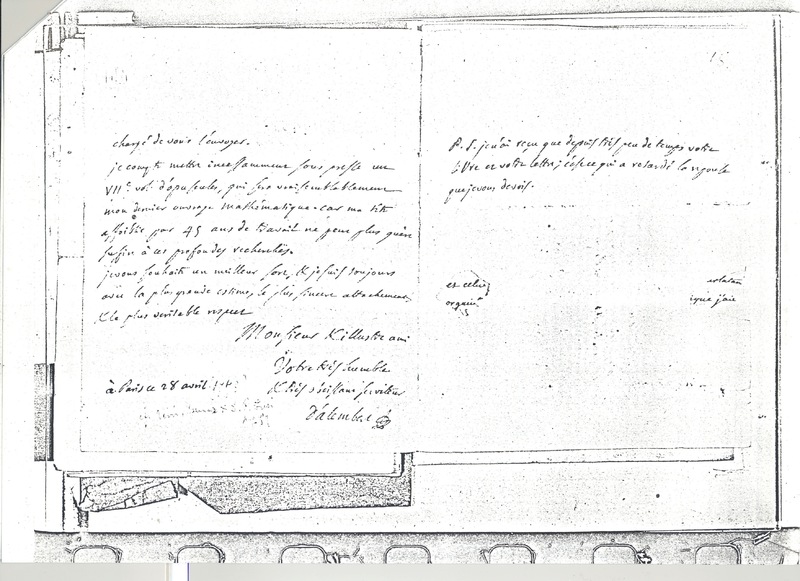 chargé de vous l'envoyer.
je compte mettre incessamment sous presse un
VIIe. vol. d'opuscules, qui sera vraisemblablement
mon dernier ouvrage mathématique. car ma tête
affoiblie par 45 ans de travail ne peut plus guère
suffire à ces profondes recherches.
je vous souhaite un meilleur sort, & je suis toujours
avec la plus grande estime, le plus sincere attachement
& le plus veritable respect
Monsieur & illustre ami
Votre très humble
& très obéissant serviteur
D'alembert
à Paris ce 28 avril
P. S. je n'ai reçu que depuis très peu de temps votre
livre et votre lettre; c'est ce qui a retardé la reponse
que je vous devois.
et celui
organi
que j'aie